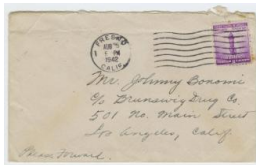 FRESNO
1 PM
1942
CALIF
Mr. Johnny Bonomi
c/o Brunswig Drug Co.
501 No. Main Street
Los Angeles, Calif.
Please Forward.